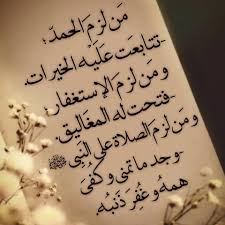 مَن لزم الحمدَ؛
-تتابعت عليه الخيرات.
ومن لزم الإستغفار.
-فتحت له المغاليق.
ومن لزم الصلاة على النبي ﷺ
-وجد ما تمنى وكُفيَ
همهُ وغُفِرَ ذَنبُه.